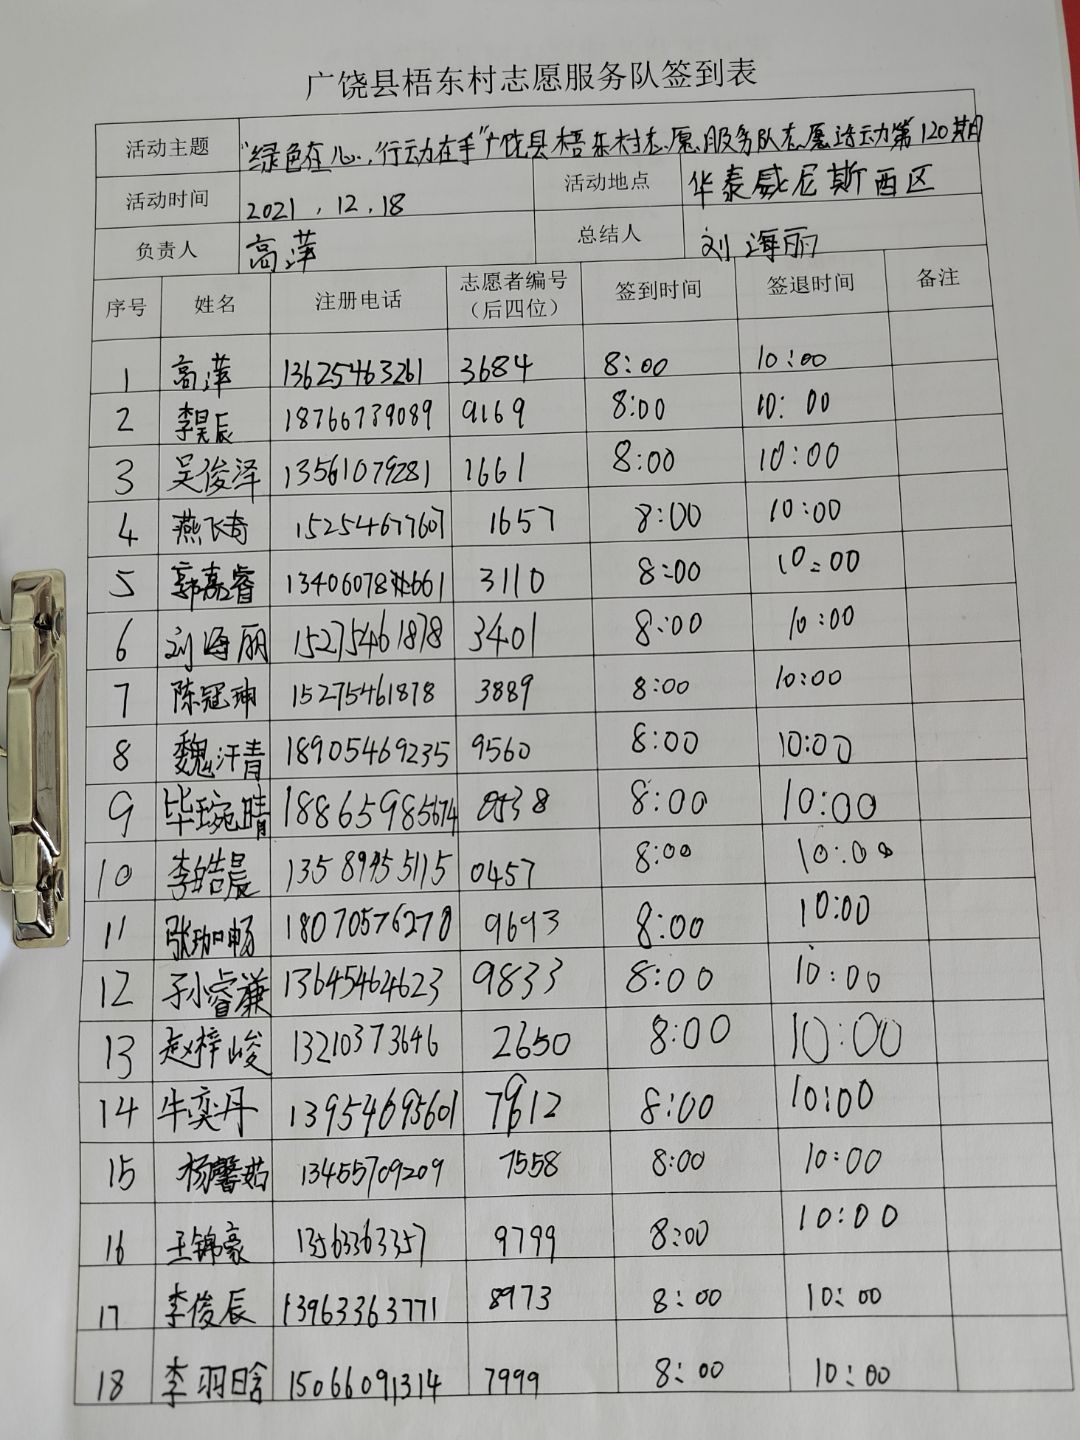 广饶县梧东村志愿服务队签到表
活动主题 "绿色在心,行动在手"广饶县梧东村志愿服务队志愿活动第120期
活动时间 2021.12.18 活动地点 华泰威尼斯西区
负责人 高萍 总结人 刘海丽
序号 姓名 注册电话 志愿者编号(后四位) 签到时间 签退时间 备注
1 高萍 13625463261 3684 8:00 10:00
2 李昊辰 18766739089 9169 8:00 10:00
3 吴俊泽 13561079281 1661 8:00 10:00
4 燕飞奇 15254677607 1657 8:00 10:00
5 郭嘉睿 13406078661 3110 8:00 10:00
6 刘海丽 15275461878 3401 8:00 10:00
7 陈冠珅 15275461878 3889 8:00 10:00
8 魏汗青 18905469235 9560 8:00 10:00
9 毕琬晴 18865985674 0538 8:00 10:00
10 李皓晨 13589955115 0457 8:00 10:00
11 张珈畅 18070576270 9693 8:00 10:00
12 孙睿谦 13645464623 9833 8:00 10:00
13 赵梓峻 13210373646 2650 8:00 10:00
14 牛奕丹 13954695601 7612 8:00 10:00
15 杨馨茹 13455709209 7558 8:00 10:00
16 王锦豪 13563363357 9799 8:00 10:00
17 李俊辰 13963363771 8973 8:00 10:00
18 李羽晗 15066091314 7999 8:00 10:00